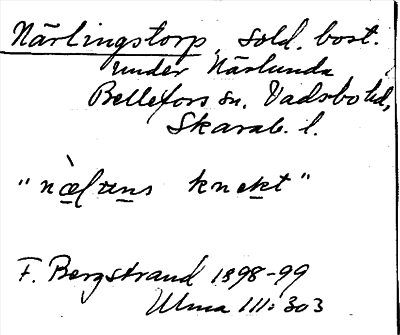 Närlingstorp, sold. bost.
under Närlunda
Bellefors sn. Vadsbo hd,
Skarab. l.
"næ̀lrens knekt"
F. Bergstrand 1898-99
Ulma 111:303